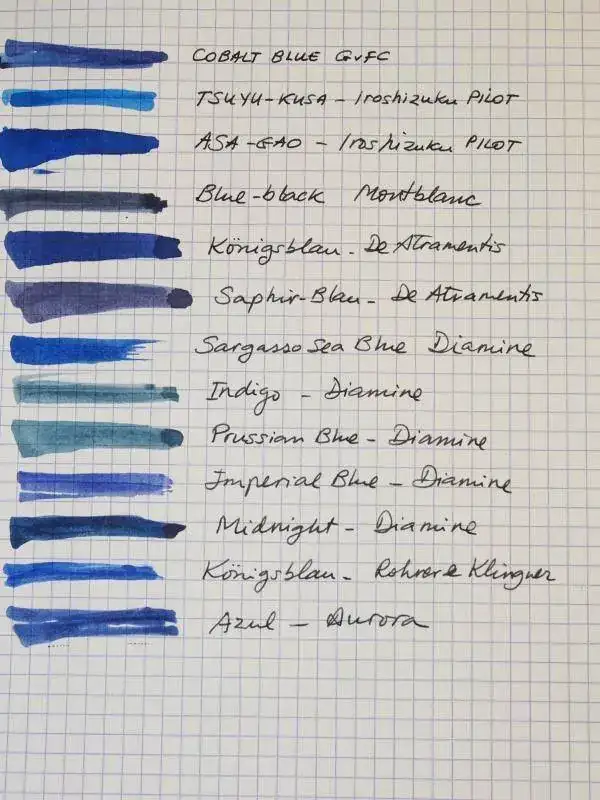 COBALT BLUE GvFC
TSUYU-KUSA - Iroshizuku PILOT
ASA-GAO - Iroshizuku PILOT
Blue-black Montblanc
Königsblau - De Atramentis
Saphir-Blau - De Atramentis
Sargasso Sea Blue Diamine
Indigo - Diamine
Prussian Blue - Diamine
Imperial Blue - Diamine
Midnight - Diamine
Königsblau - Rohrer & Klingner
Azul - Aurora